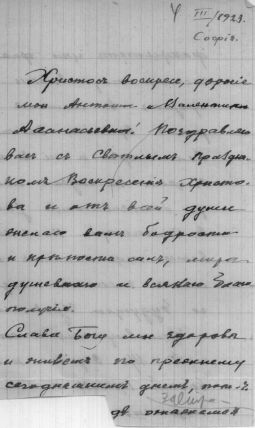 III/1923.
Софія.
Христосъ воскресе, дорогіе
мои Антонъ и Валентина
Аѳанасьевна! Поздравляю
васъ съ Свѣтлымъ празд-
никомъ Воскресенія Христо-
ва и отъ всей души
желаю вамъ бодрости
и крѣпости силъ, мира
душевнаго и всякаго благо
получія.
Слава Богу мы здоровы
и живемъ по прежнему
сегодняшнимъ днемъ,